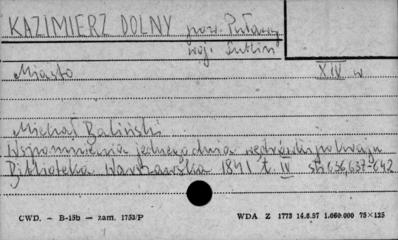 KAZIMIERZ DOLNY pow. Puławy
woj. Lublin
Miasto XIV w
Michał Baliński
Wspomnienia jednego dnia wędrówki po kraju
Biblioteka Warszawska 1841 t. IV str 636, 637-642
CWD. – B-15b – zam. 1753/P WDA Z 1773 14.8.57 1.060.000 75×125